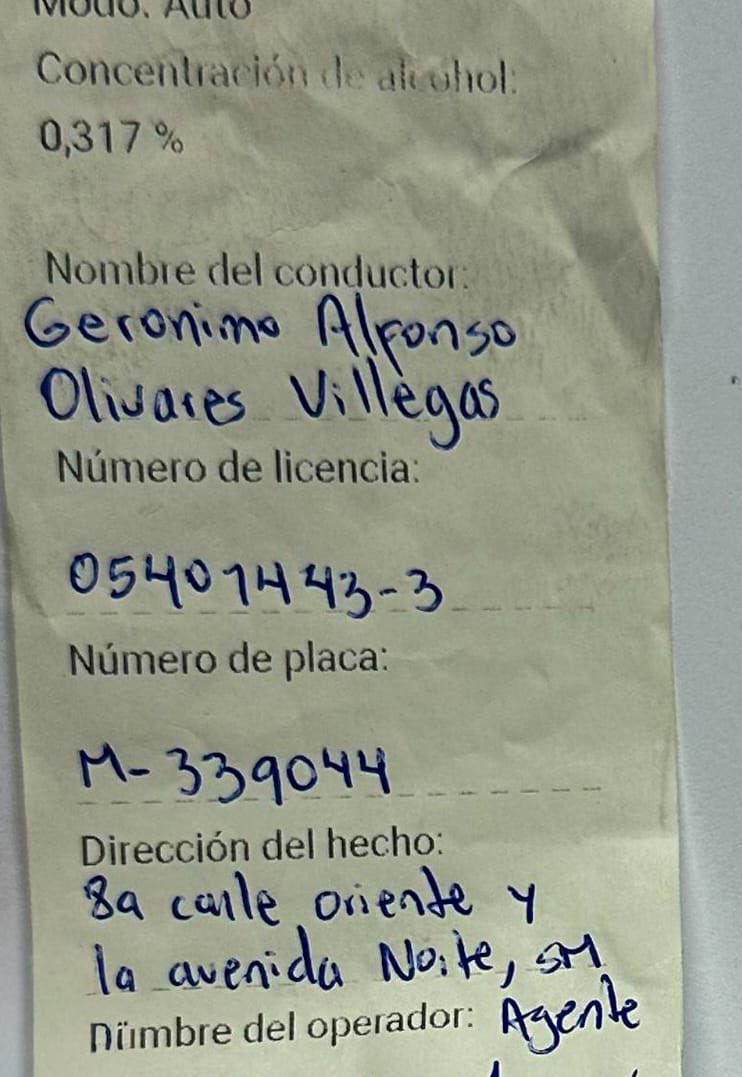 Modo: Auto
Concentración de alcohol:
0,317 %
Nombre del conductor:
Geronimo Alfonso
Olivares Villegas
Número de licencia:
05401443-3
Número de placa:
M-339044
Dirección del hecho:
8a calle oriente y
1a avenida Norte, SM
Nombre del operador: Agente